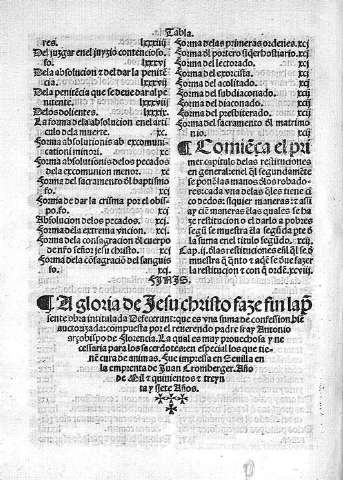 Tabla.
res. lxxxiij
Del juzgar en el juyzio contencioso.
fo. lxxxvj
Dela absolucion ⁊ del dar la penitẽ
cia. lxxxvij
Dela penitẽcia que se deue dar al pe
nitente. lxxxvij
Delos dolientes. lxxxix
La forma dela absolucion en el arti
culo dela muerte. xc
Forma absolutionis ab excomuni
cationi minori. xc
Forma absolutionis delos pecados
dela excomunion menor. xc
Forma del sacramento ðl baptismo
fo. xc
Forma de dar la crisma por el obis
po. fo. xcj
Absolucion delos pecados. xcj
Forma dela extrema vncion. xcj
Forma dela consagraciõ ðl cuerpo
de nr̃o señor jesu christo. xcj
Forma dela cõsagraciõ del sanguis
fo. xcj
Forma delas primeras ordenes. xcj
Forma ðl portero siq̃er hostiario. xcj
Forma del lectorado. xcj
Forma del exorcista. xcj
Forma del acolitado. xcj
Forma del subdiaconado. xcij
Forma del diaconado. xcij
Forma del presbiterado. xcij
Forma del sacramento ðl matrimo
nio. xcij
¶ Comiẽça el pri
mer capitulo delas restituciones
en general: en el q̃l segundamẽte
se ponẽ las manos ðlos robado-
res: cada vna de las q̃les tiene ci
co dedos: siquier maneras: ⁊ assi
ay ciẽ maneras ðlas quales se ha
ze restitucion el darlo a pobres
segũ se muestra ẽla segũda pte ð
la suma en el titulo segũdo. xcij.
Cap. ij. ðlas restituciones en q̃l se
muestra q̃ quito ⁊ aq̃ẽ se due fazer
la restitucion ⁊ con q̃ ordẽ. xcviij.
FINIS.
¶ A gloria de Jesu christo faze fin la p̃
sente obra intitulada Defecerunt: que es vna suma de confession. biẽ
auctorizada: compuesta por el reuerendo padre fray Antonio
arçobispo de Florencia. La qual es muy prouechosa y ne
cessaria para los sacerdotes: en especial los que tie-
nẽ cura de animas. Fue impressa en Seuilla en
la emprenta de Juan Cromberger. Año
de Mil ⁊ quinientos ⁊ treyn
ta y siete Años.